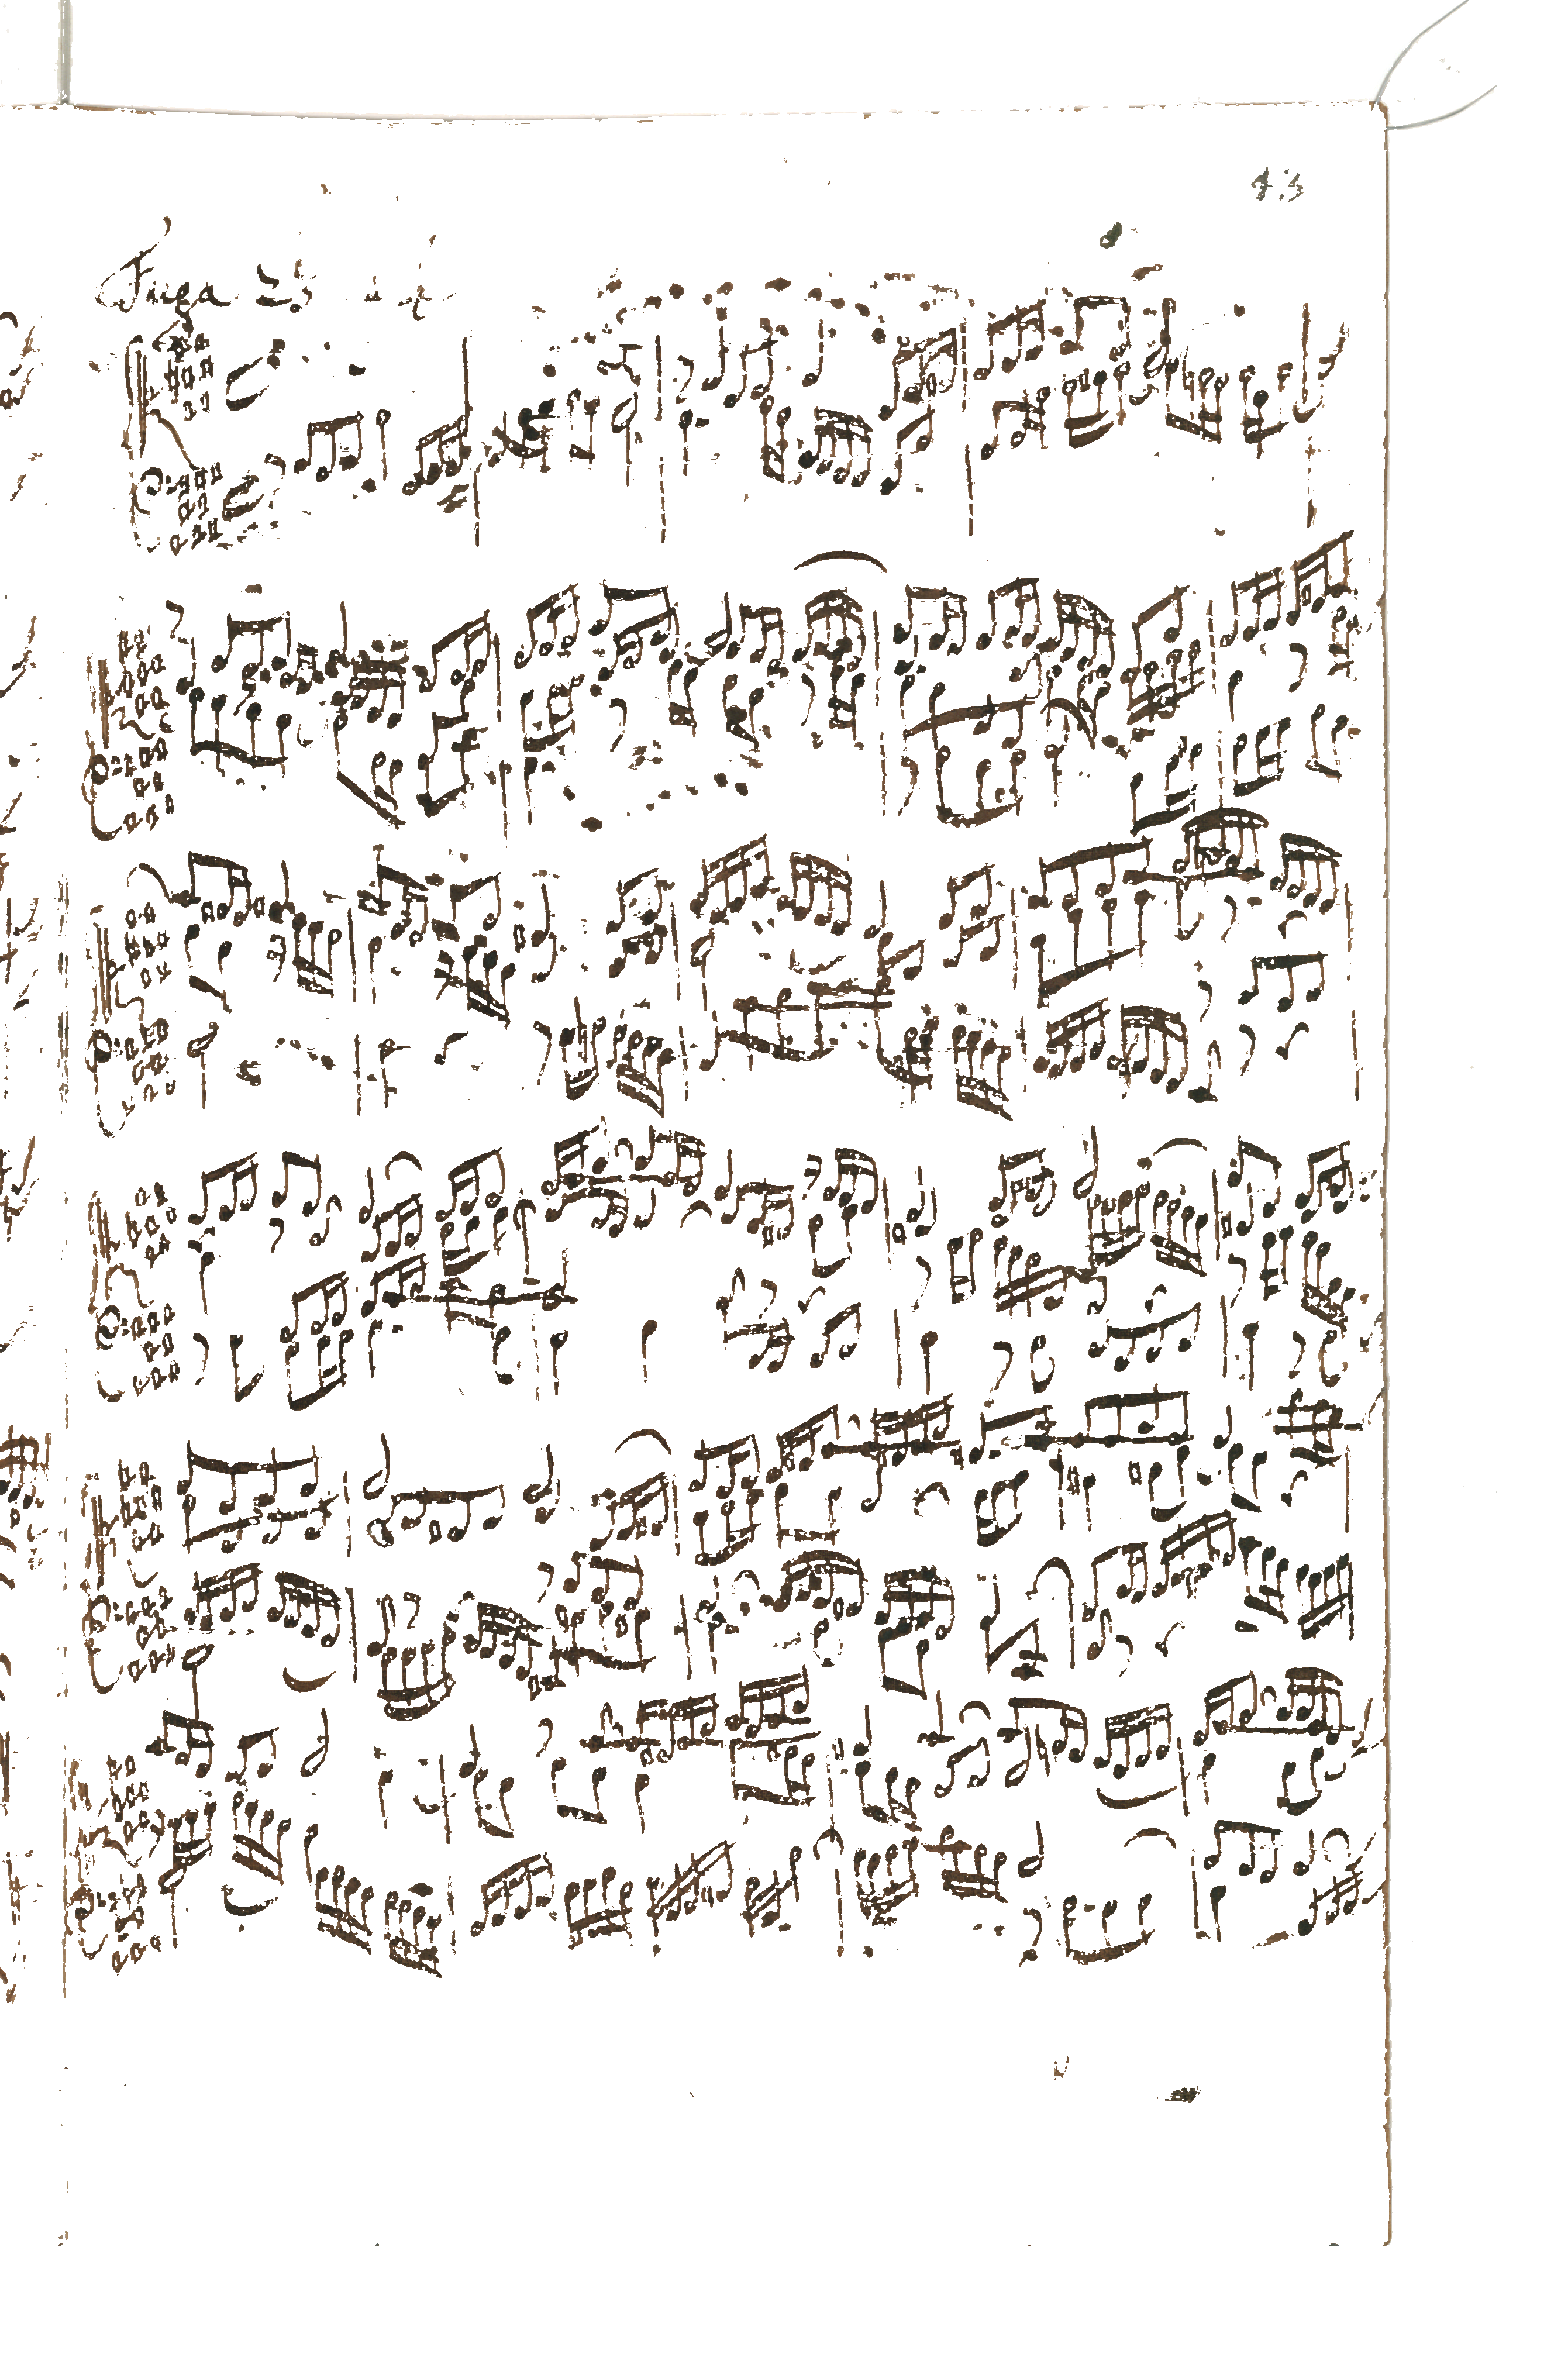 43
Fuga 23 à 4